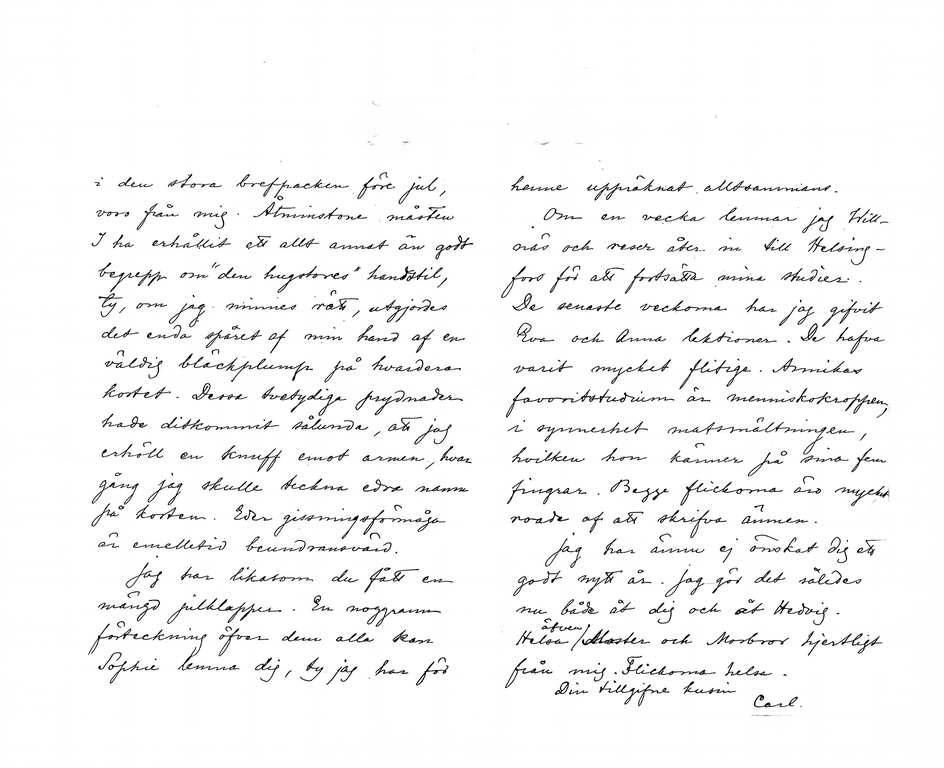 i den stora brefpacken före jul,
voro från mig. Åtminstone måsten
I ha erhållit ett allt annat än godt
begrepp om "den hugstores" handstil,
ty, om jag minnes rätt, utgjordes
det enda spåret af min hand af en
väldig bläckplump på hvardera
kortet. Dessa tvetydiga prydnader
hade ditkommit sålunda, att jag
erhöll en knuff emot armen, hvar
gång jag skulle teckna edra namn
på korten. Eder gissningsförmåga
är emellertid beundransvärd.
Jag har likasom du fått en
mängd julklappar. En noggrann
förteckning öfver dem alla kan
Sophie lemna dig, ty jag har för
henne uppräknat alltsammans.
Om en vecka lemnar jag Will-
näs och reser åter in till Helsing-
fors för att fortsätta mina studier.
De senaste veckorna har jag gifvit
Eva och Anna lektioner. De hafva
varit mycket flitiga. Annikas
favoritstudium är menniskokroppen,
i synnerhet matsmältningen,
hvilken hon känner på sina fem
fingrar. Begge flickorna äro mycket
roade af att skrifva ämnen.
Jag har ännu ej önskat dig ett
godt nytt år. Jag gör det således
nu både åt dig och åt Hedvig.
Helsa äfven Moster och Morbror hjertligt
från mig. Flickorna helsa.
Din tillgifne kusin
Carl.